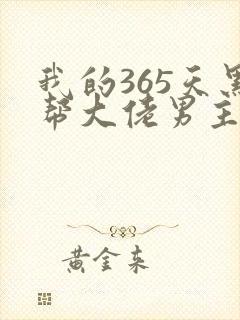 我的365天黑
帮大佬男主
黄金来